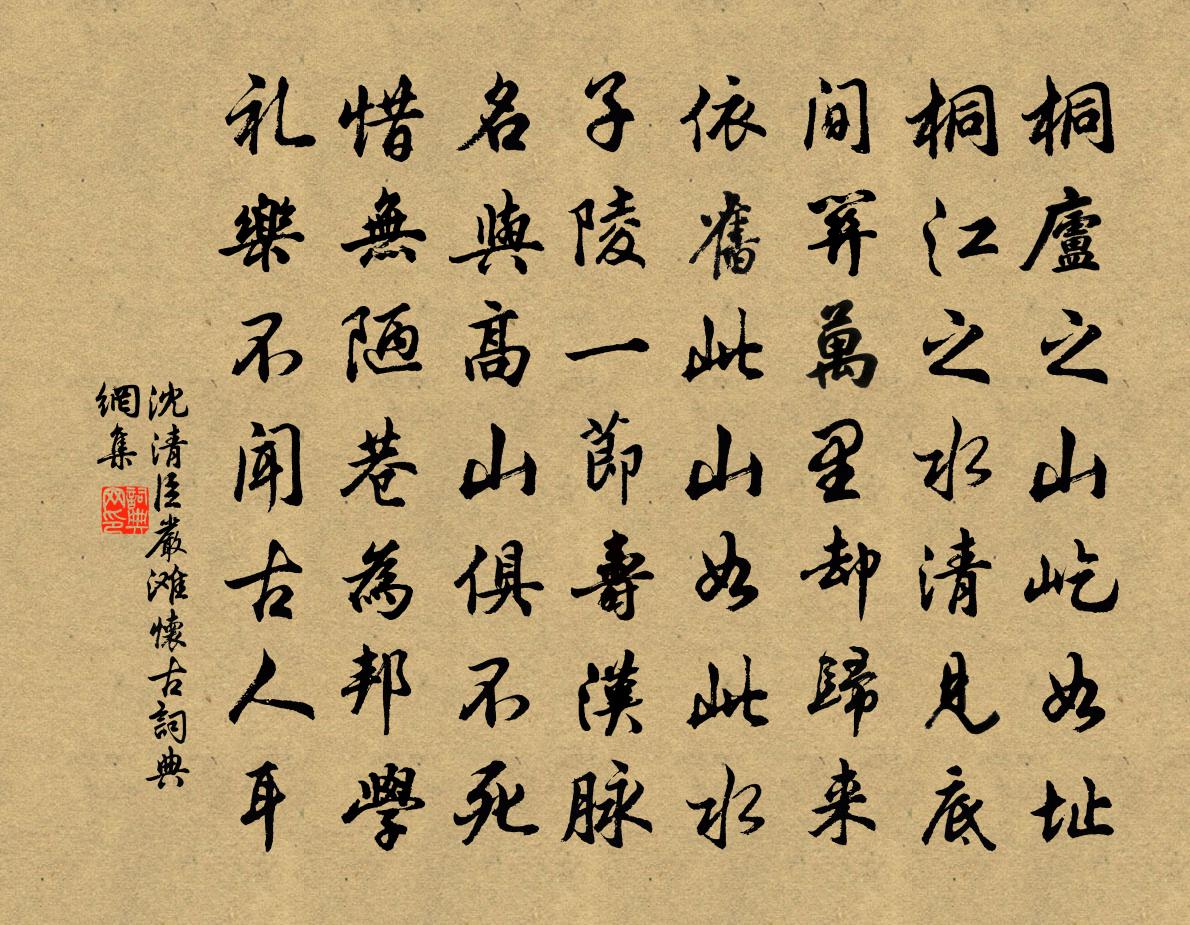 桐廬之山屹如址
桐江之水清見底
间关萬里却歸来
依舊此山如此水
子陵一節壽漢脉
名與高山俱不死
惜無陋巷為邦學
礼樂不聞古人耳
沈清臣嚴滩懷古詞典
網集
詞典
网印